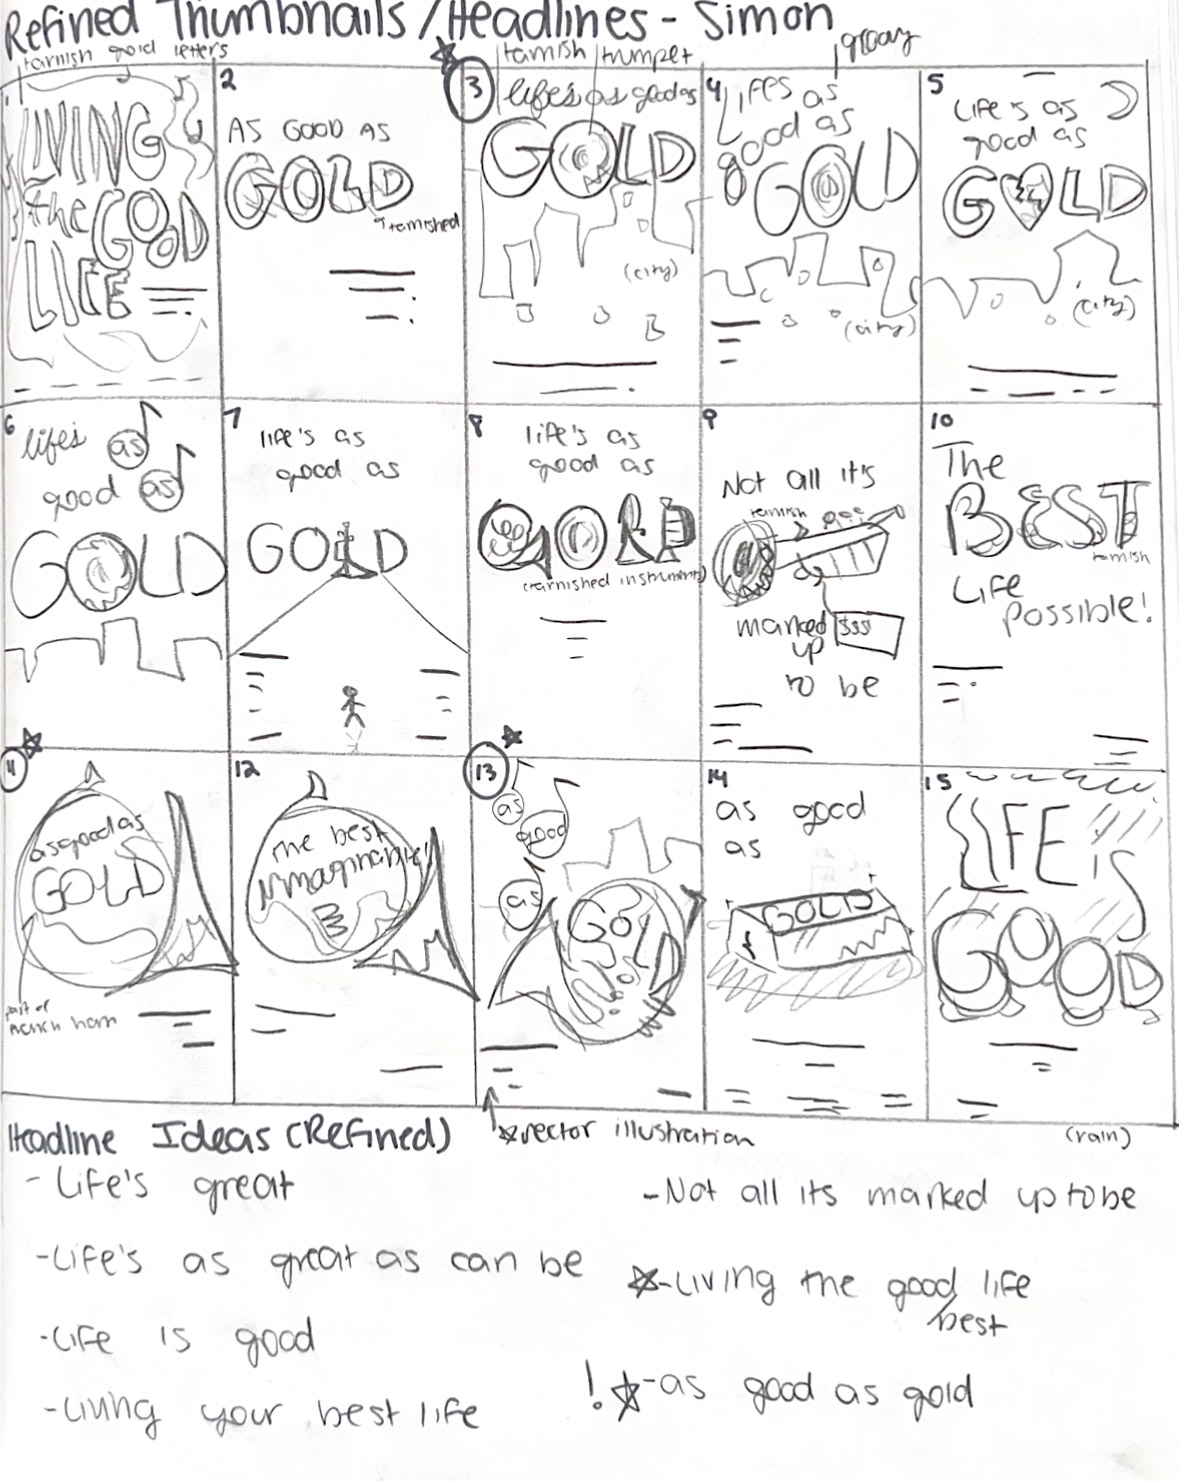 Refined Thumbnails/Headlines - Simon
tarnish gold letters
1
LIVING
the GOOD
LIFE
2
AS GOOD AS
GOLD
tarnished
3
tarnish trumpet
life's as good as
GOLD
(city)
4
groovy
Life's as
good as
GOLD
(city)
5
Life's as
good as
GOLD
(city)
6
life's as
good as
GOLD
7
life's as
good as
GOLD
8
life's as
good as
GOLD
(tarnished instruments)
9
Not all it's
tarnish
marked $$$
up
to be
10
The
BEST
tarnish
Life
Possible!
11
as good as
GOLD
part of
french horn
12
The best
imaginable!
13
as
good
as
GOLD
14
as good
as
GOLD
15
LIFE IS
GOOD
Headline Ideas (Refined)
vector illustration
(rain)
- Life's great
- Life's as great as can be
- Life is good
- Living your best life
- Not all its marked up to be
- Living the good life
/best
! - as good as gold